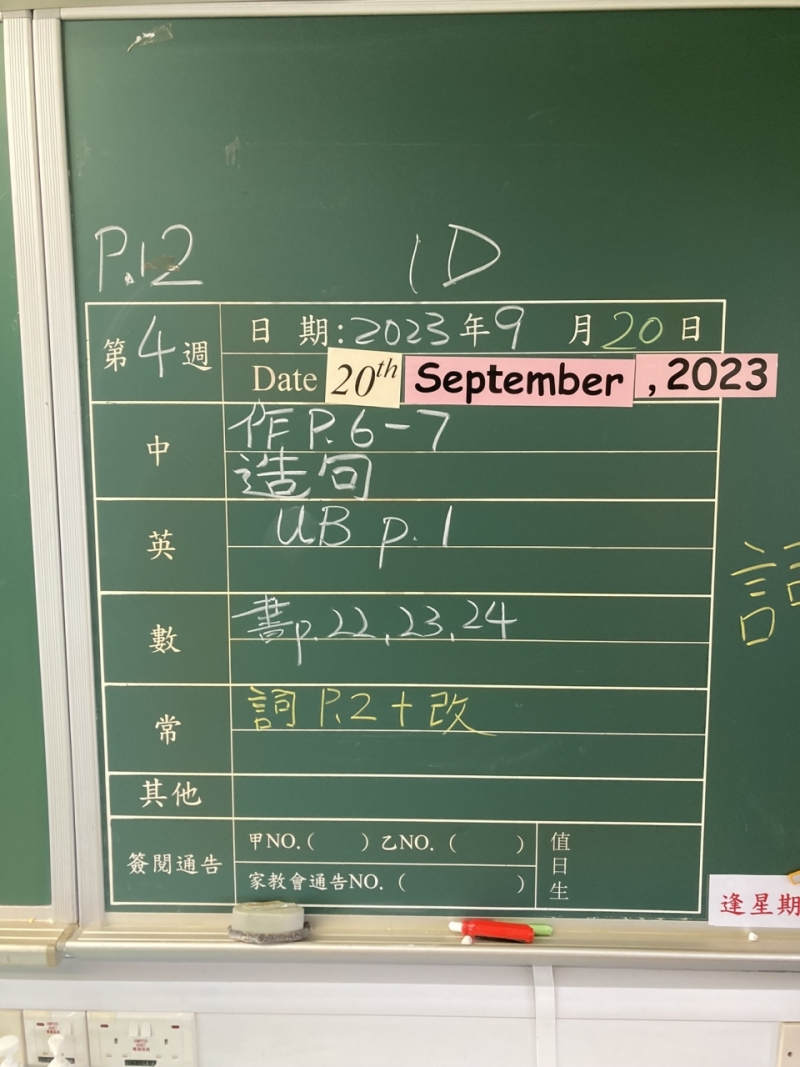 P.12 1D
第4週 日期:2023年9月20日
Date 20th September, 2023
中 作P.6-7
造句
英 UB p.1
數 書p.22,23,24
常 詞P.2+改
其他
簽閱通告 甲NO.( ) 乙NO.( )
家教會通告NO.( )
值日生
逢星期